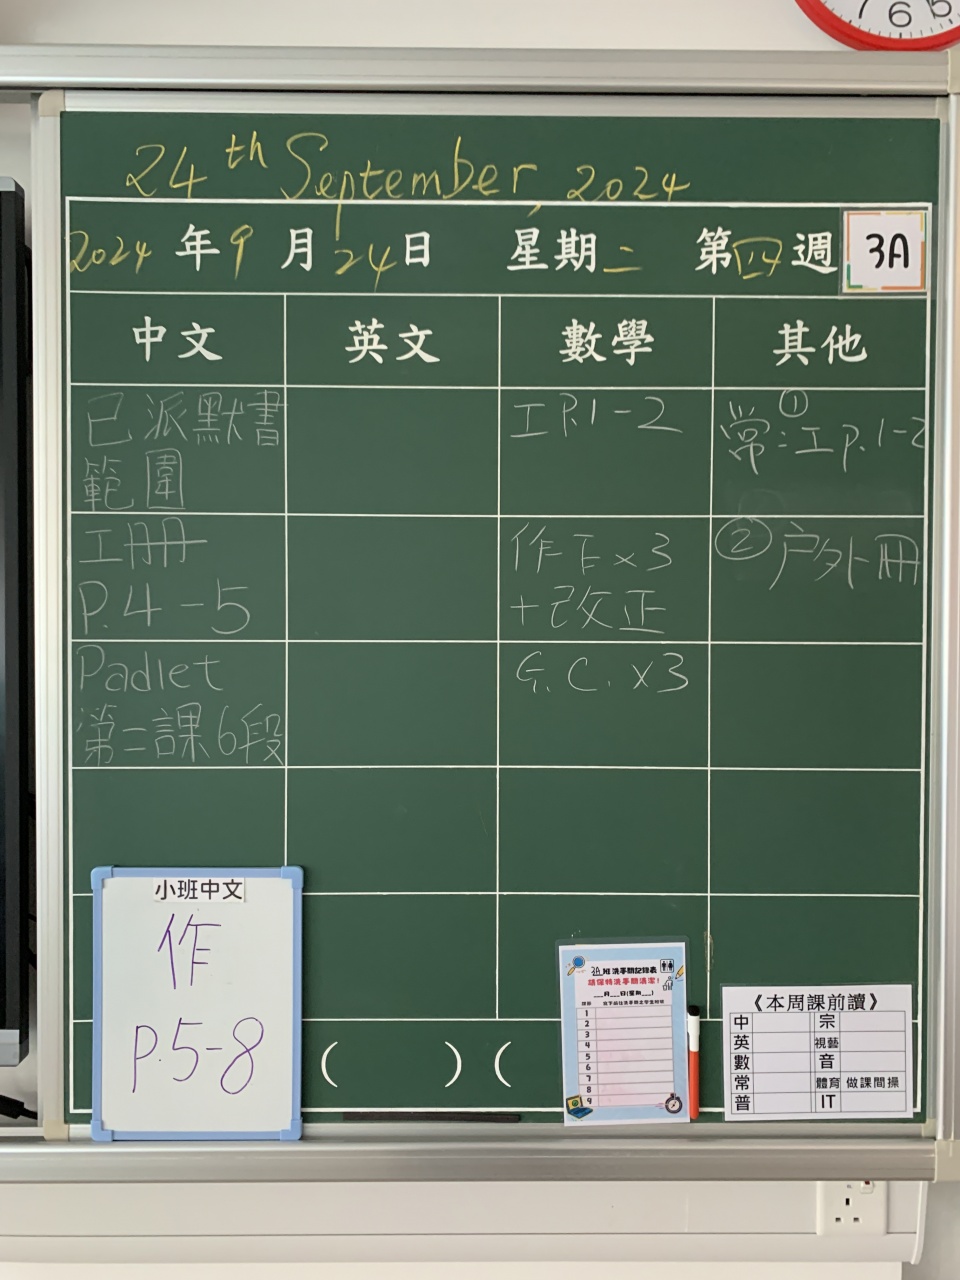 7 6 5
24th September, 2024
2024年9月24日 星期二 第四週 3A
中文 英文 數學 其他
已派默書
範圍
工P.1-2
①
常:工P.1-2
工冊
P.4-5
作E×3
+改正
②户外冊
Padlet
第二課6段
G.C.×3
小班中文
作
P.5-8
( ) (
3A班洗手間記錄表
請保持洗手間清潔!
___月___日(星期___)
1
2
3
4
5
6
7
8
9
《本周課前讀》
中 宗
英 視藝
數 音
常 體育 做課間操
普 IT